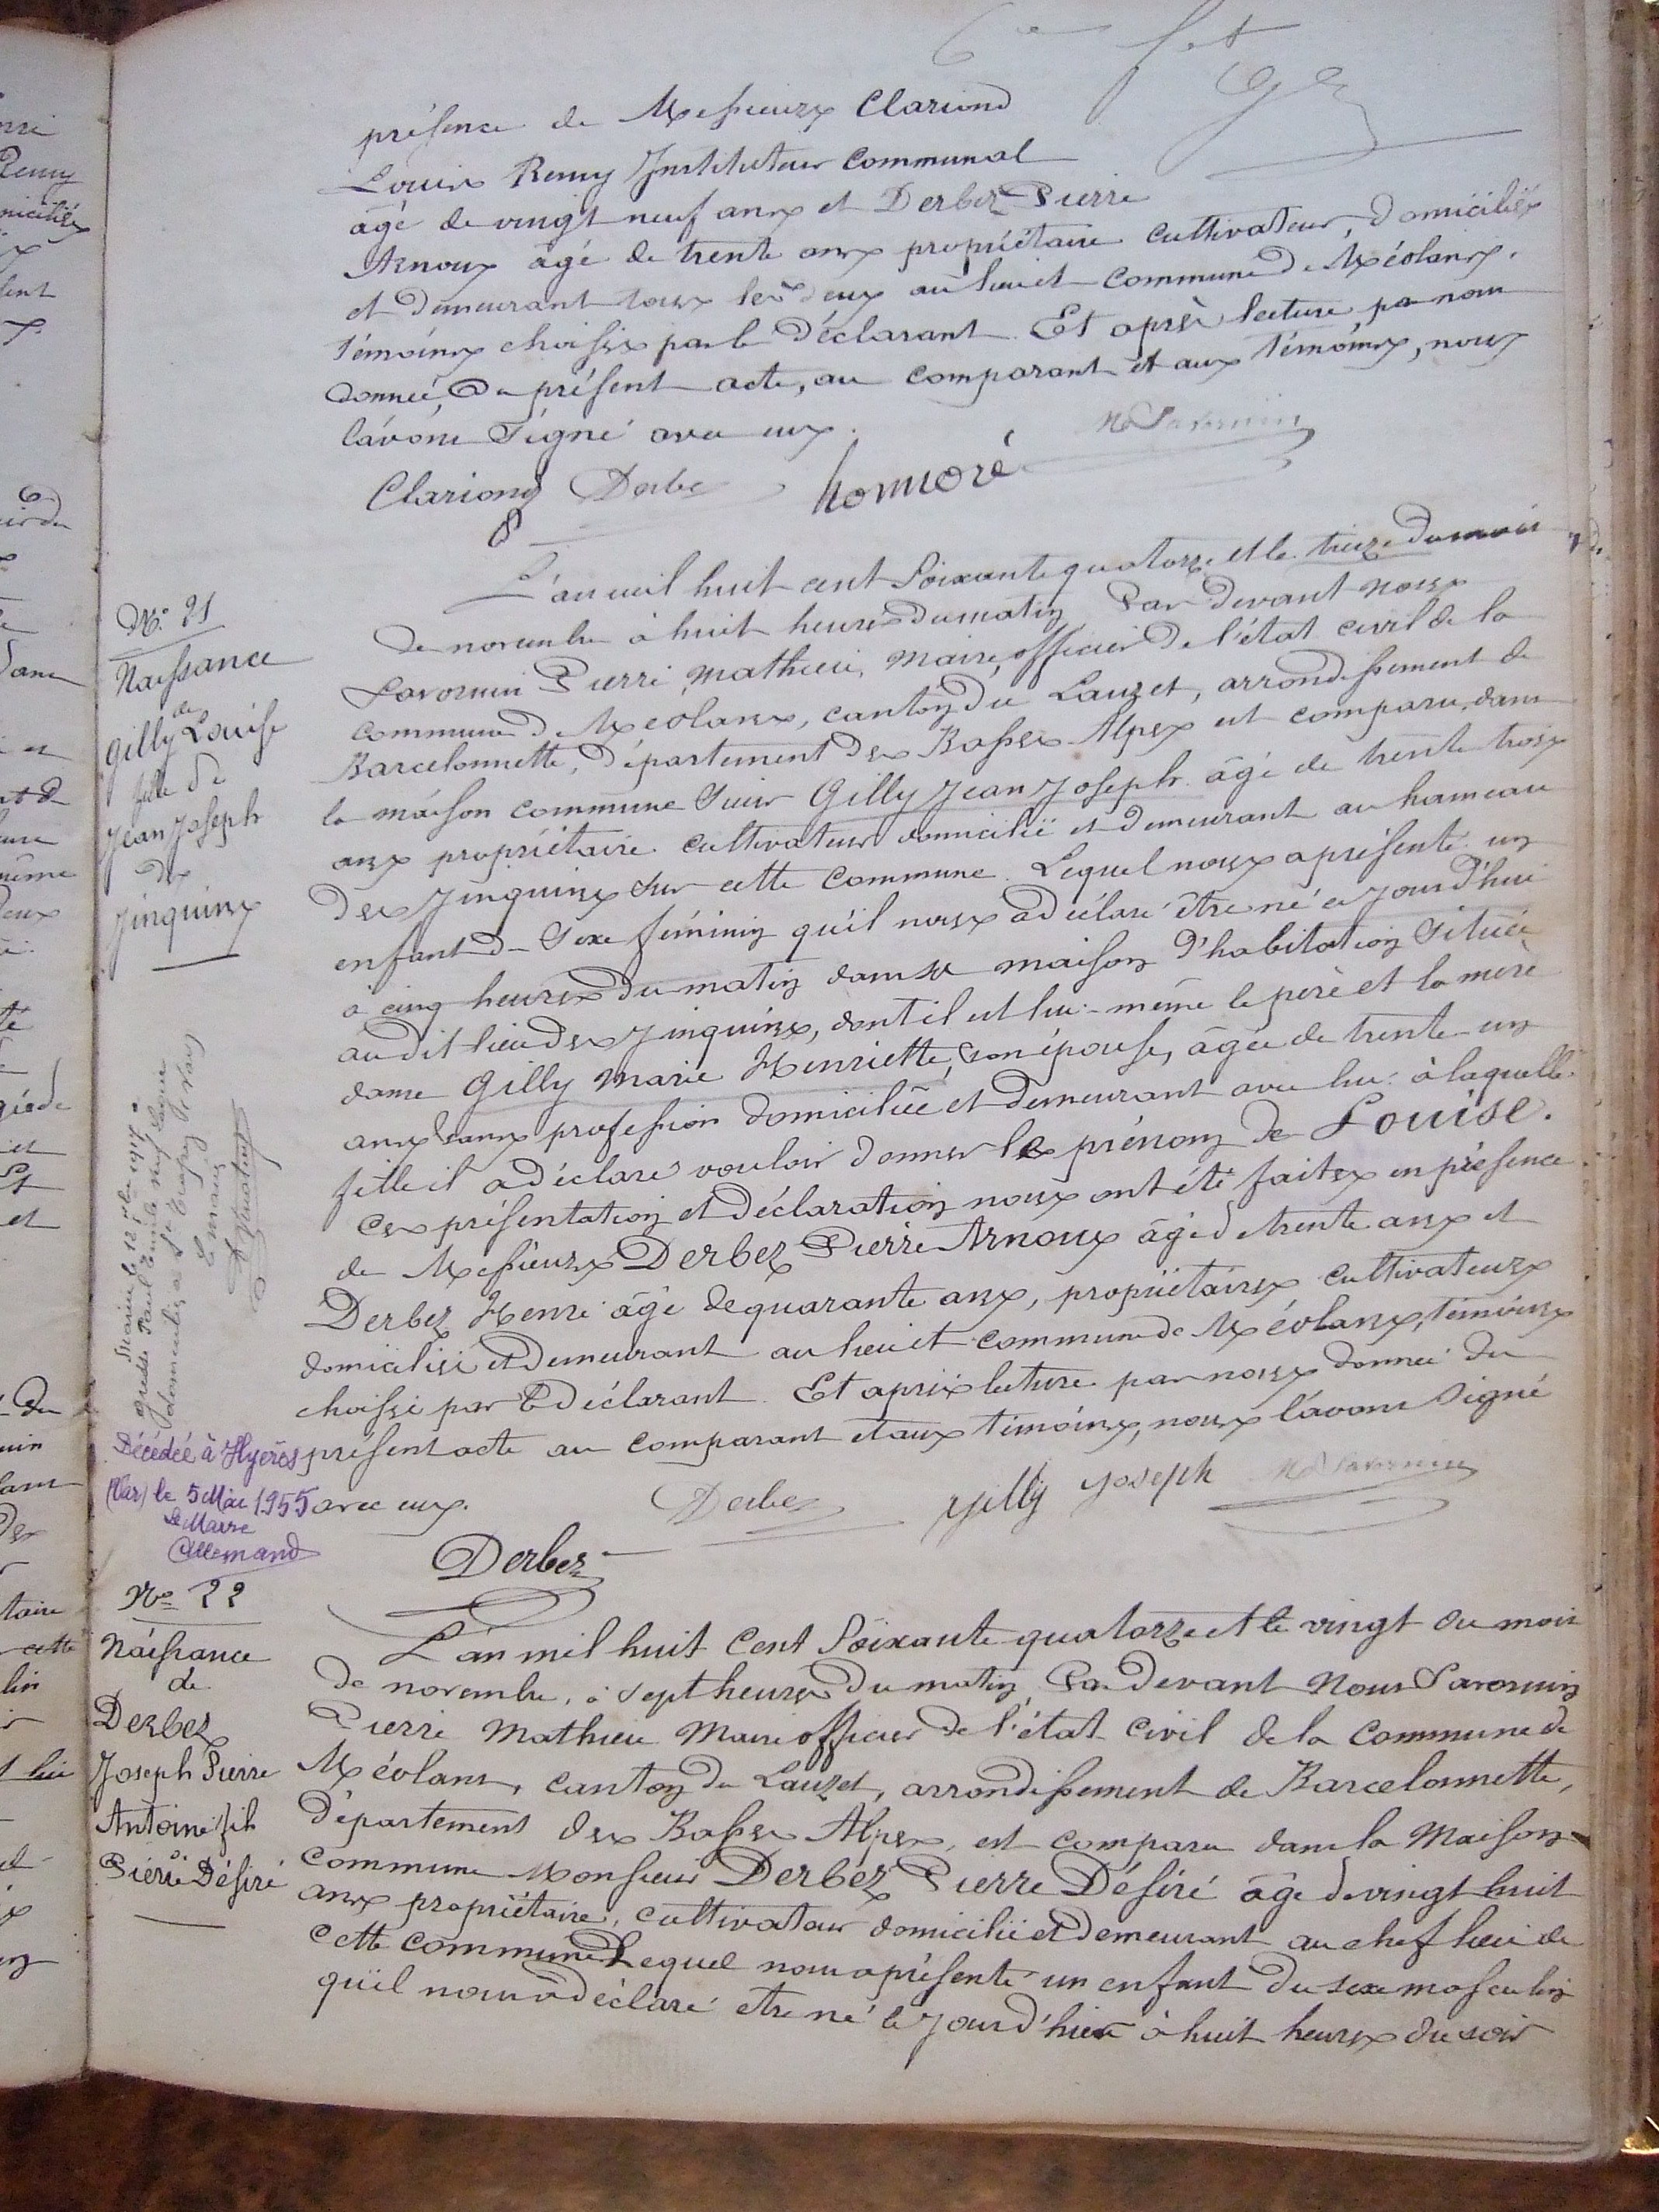 6e fet
présence de Messieurs Clariond
Louis Remy Instituteur communal
âgé de vingt neuf ans et Derbez Pierre
Arnoux âgé de trente ans propriétaire cultivateur, domiciliés
et demeurant tous les deux au lieu et commune de Méolans,
témoins choisis par le Déclarant. Et après lecture par nous
donnée, du présent acte, au comparant et aux témoins, nous
l'avons signé avec eux.
Clariond Derbez honnoré Savornin
No. 21
Naissance
de
Gilly Louise
fille de
Jean Joseph
des
Jinquins
L'an mil huit cent soixante quatorze et le treize du mois
de novembre à huit heures du matin Par devant nous
Savornin Pierre Mathieu, Maire, officier de l'état civil de la
commune de Méolans, canton du Lauzet, arrondissement de
Barcelonnette, département des Basses Alpes est comparu, dans
la maison commune sieur Gilly Jean Joseph âgé de trente trois
ans propriétaire cultivateur domicilié et demeurant au hameau
des Jinquins sur cette commune. Lequel nous a présenté un
enfant du sexe féminin qu'il nous a déclaré être né ce jourd'hui
à cinq heures du matin dans sa maison d'habitation située
au dit lieu des Jinquins, dont il est lui-même le père et la mère
dame Gilly Marie Henriette, son épouse, âgée de trente un
ans sans profession domiciliée et demeurant avec lui à laquelle
fille il a déclaré vouloir donner le prénom de Louise.
Ces présentation et déclaration nous ont été faites en présence
de Messieurs Derbez Pierre Arnoux âgé de trente ans et
Derbez Henri âgé de quarante ans, propriétaires cultivateurs
domiciliés et demeurant au lieu et commune de Méolans, témoins
choisis par le déclarant. Et après lecture par nous donnée du
présent acte au comparant et aux témoins, nous l'avons signé
avec eux.
Derbez Gilly Joseph Savornin
Derbez
le 12 1917
Paul Emile
le maire
Décédée à Hyères
(Var) le 5 Mai 1955
Le Maire
Allemand
No 22
Naissance
de
Derbez
Joseph Pierre
Antoine fils
de
Pierre Désiré
L'an mil huit cent soixante quatorze et le vingt du mois
de novembre, à sept heures du matin Par devant Nous Savornin
Pierre Mathieu Maire officier de l'état civil de la commune de
Méolans, canton du Lauzet, arrondissement de Barcelonnette,
département des Basses Alpes, est comparu dans la Maison
commune Monsieur Derbez Pierre Désiré âgé de vingt huit
ans propriétaire, cultivateur domicilié et demeurant au chef lieu de
cette commune Lequel nous a présenté un enfant du sexe masculin
qu'il nous a déclaré etre né le jour d'hier à huit heures du soir